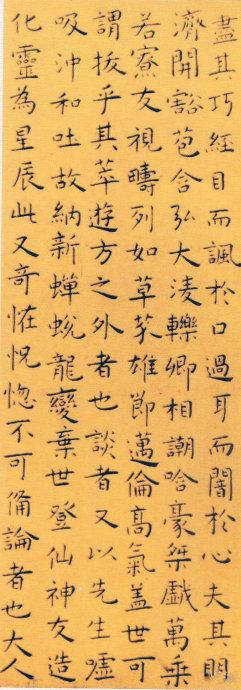 盡其巧經目而諷於口過耳而闇於心夫其明
濟開豁苞含弘大淩轢卿相謿哈豪桀戲萬乘
若寮友視疇列如草芥雄節邁倫高氣蓋世可
謂拔乎其萃遊方之外者也談者又以先生噓
吸沖和吐故納新蟬蛻龍變棄世登仙神友造
化靈為星辰此又奇恠怳惚不可備論者也大人